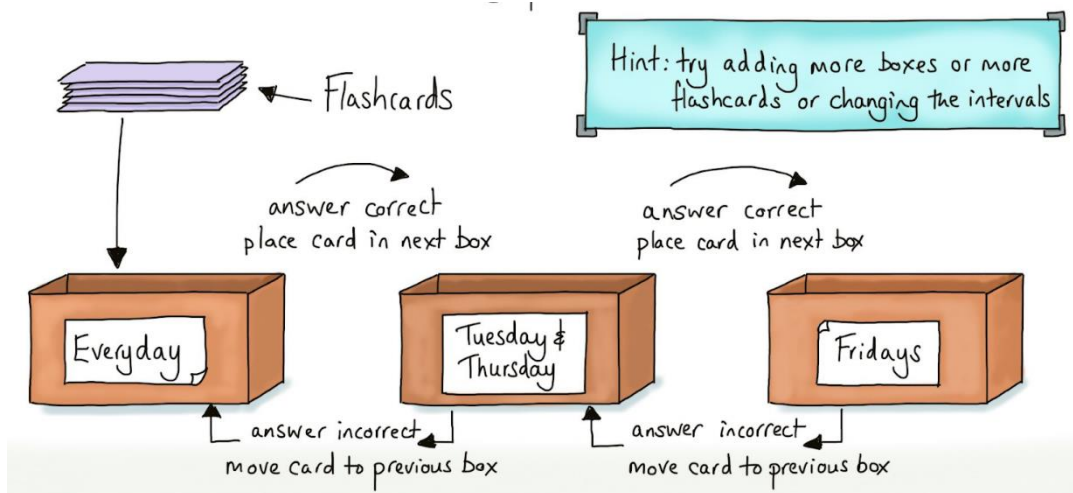 Flashcards
Hint: try adding more boxes or more
flashcards or changing the intervals
answer correct
place card in next box
answer correct
place card in next box
Everyday
Tuesday &
Thursday
Fridays
answer incorrect
move card to previous box
answer incorrect
move card to previous box